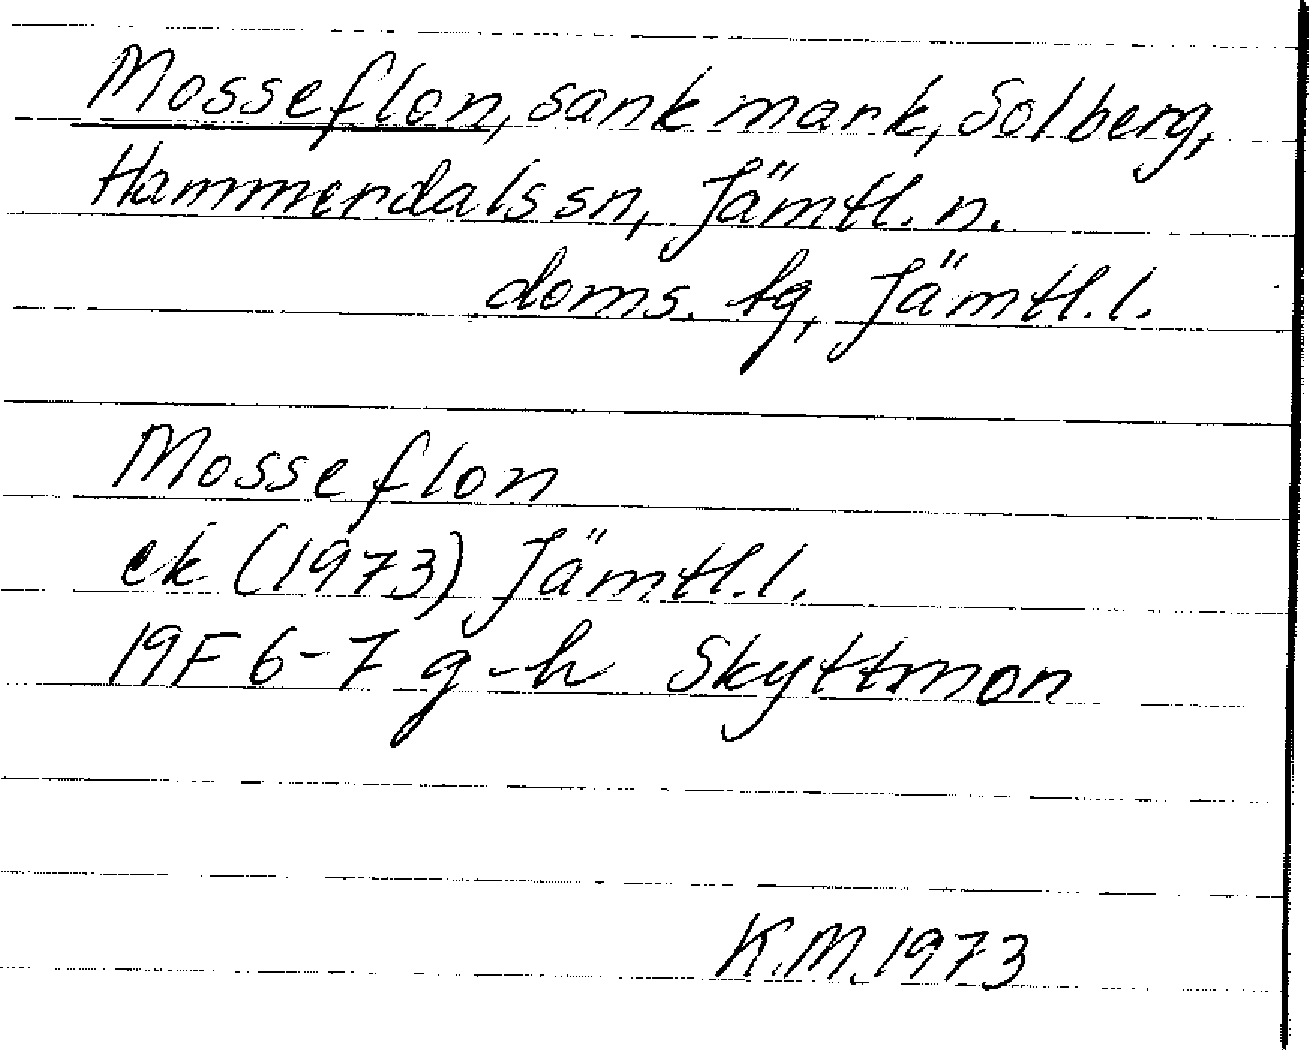 Mosseflon, sank mark, Solberg,
Hammerdals sn, Jämtl. n.
doms. tg, Jämtl. l.
Mosseflon
ek (1973) Jämtl. l.
19F 6-7 g-h Skyttmon
K.M. 1973